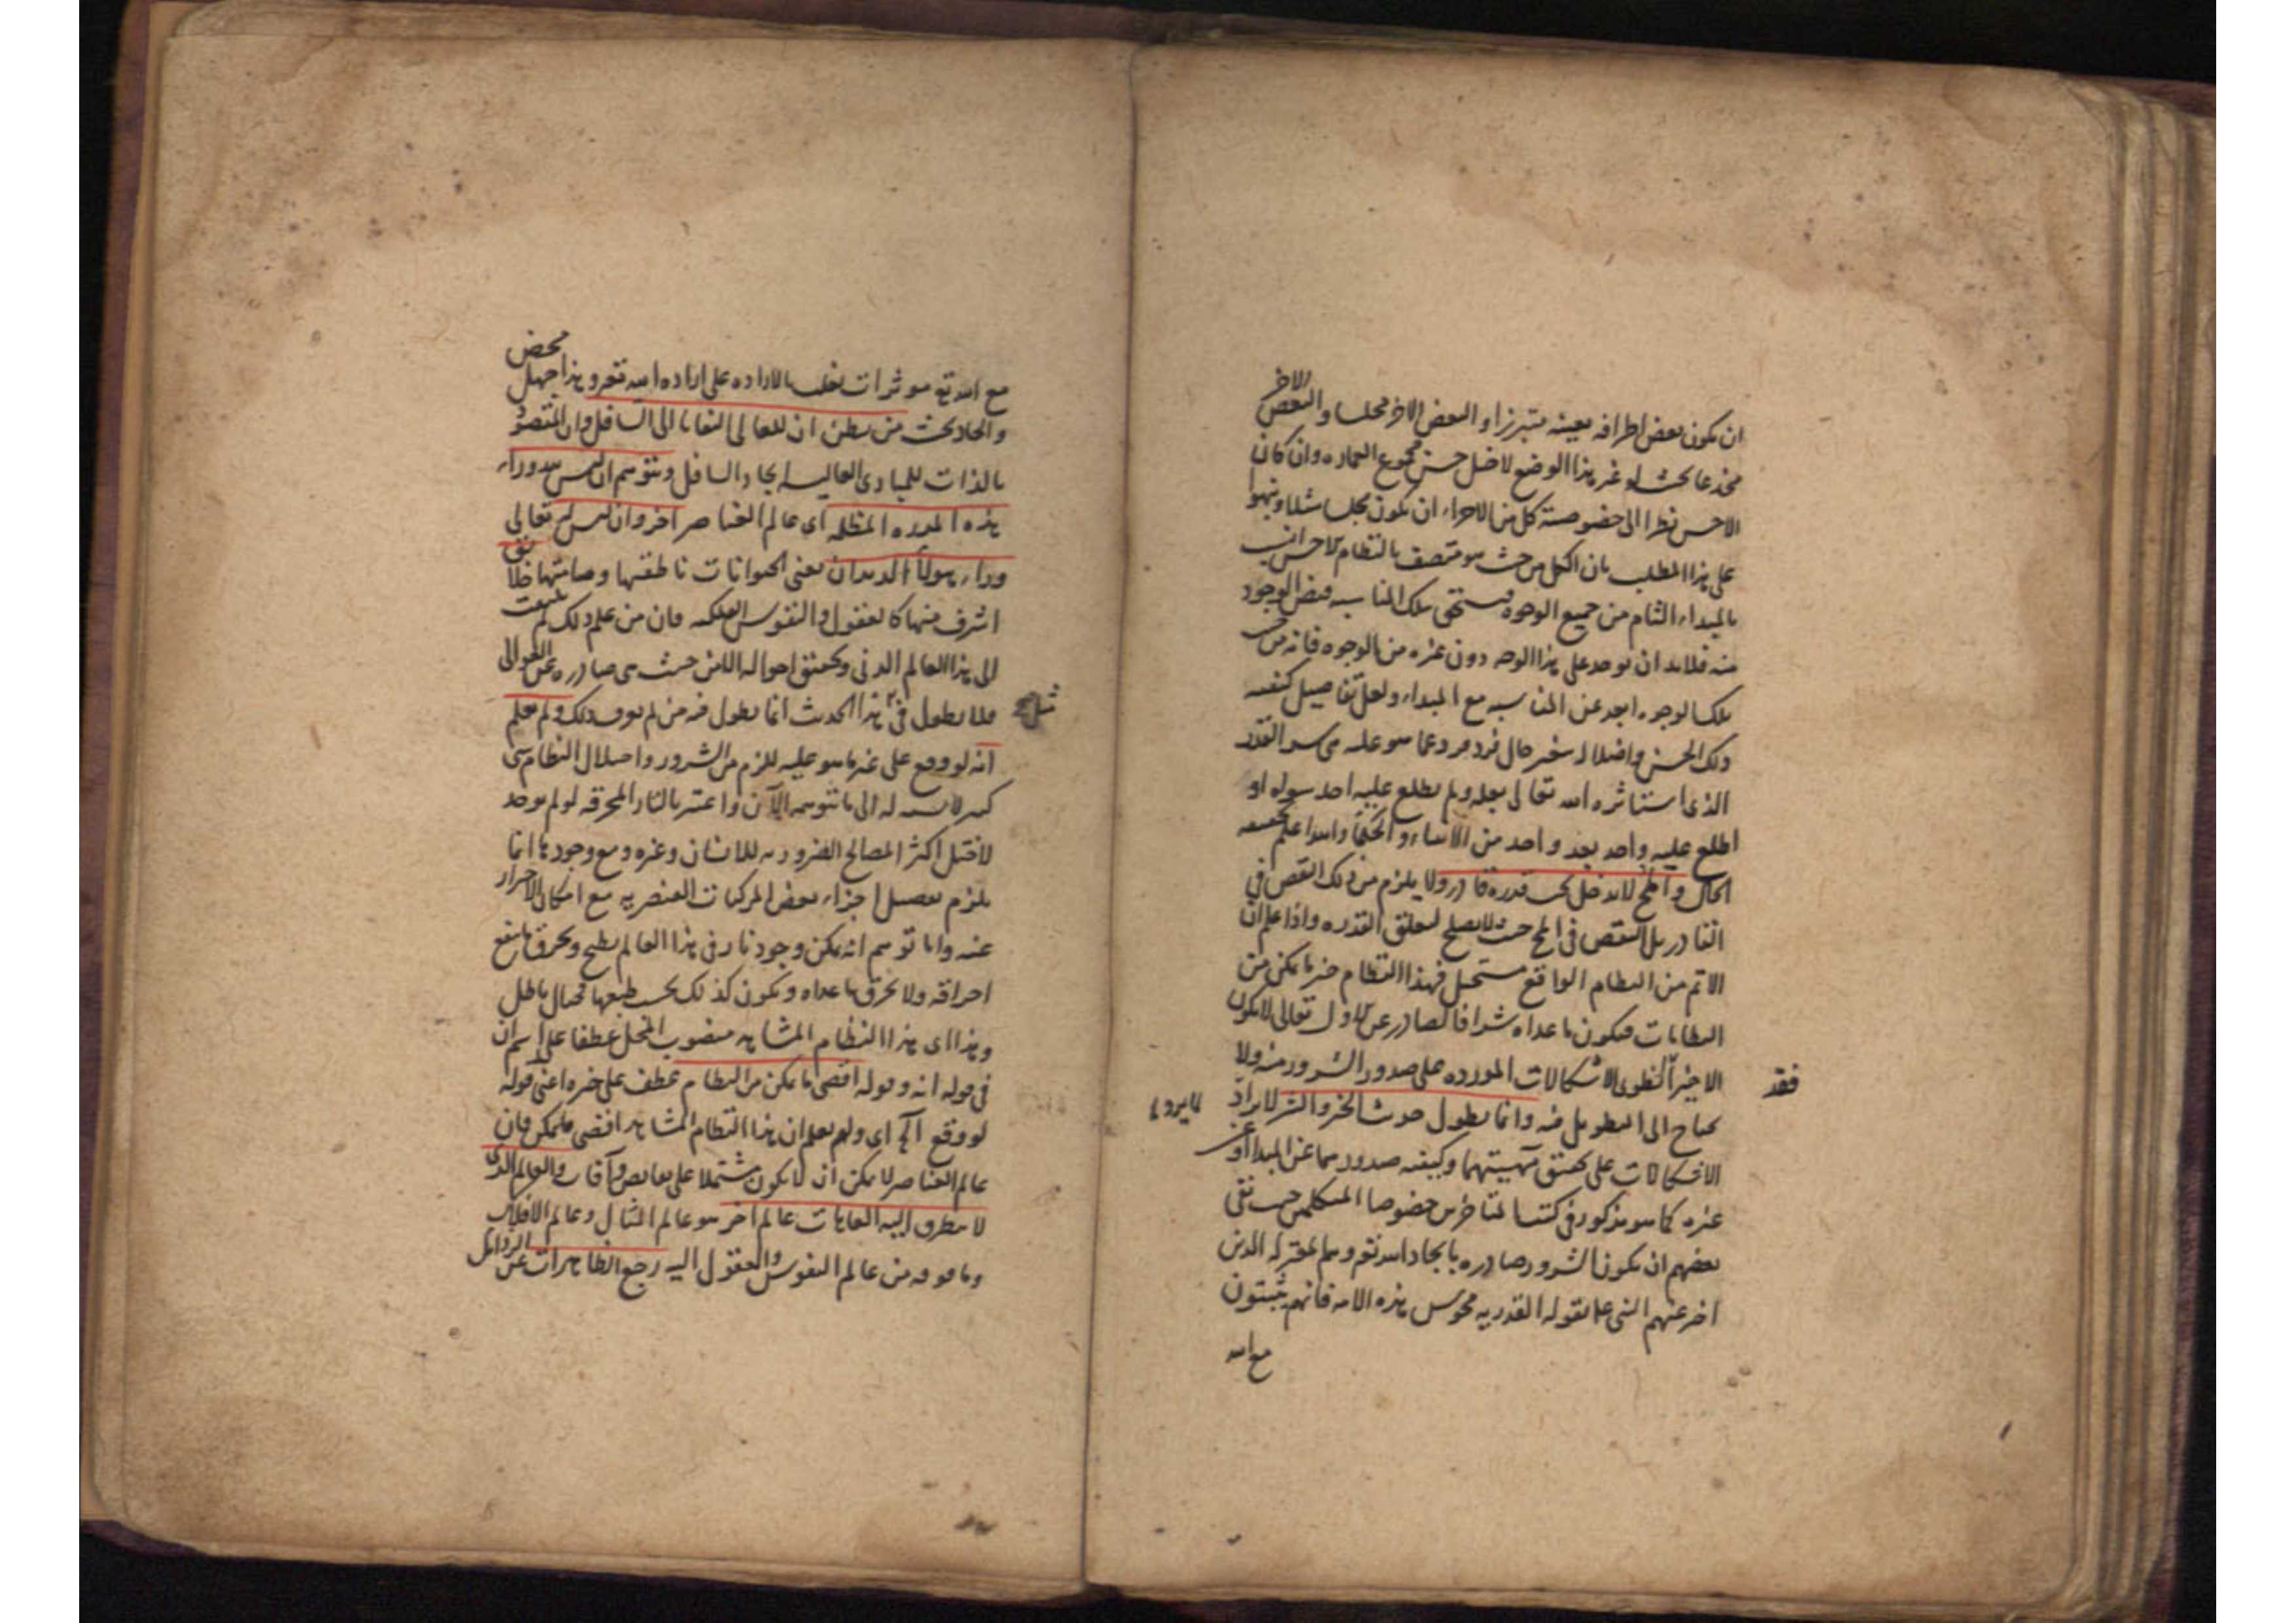 ان يكون بعض اطرافه بعينه متبرزا والبعض الاخر مجلسا والبعض الاخر
بحيث لو غير هذا الوضع لاختل حسن مجموع العمارة وان كان
الاحسن نظرا الى خصوصية كل من الاجزاء ان يكون مجلسا مثلا ونبهوا
على هذا المطلب بان الكل من حيث هو متصف بالنظام الاحسن انسب
بالمبداء التام من جميع الوجوه تلك المناسبة فيض الوجود
منه فلا بد ان يوجد على هذا الوجه دون غيره من الوجوه فانه من
تلك الوجوه ابعد عن المناسبة مع المبداء ولعل تفاصيل كيفية
ذلك الحسن واختلاله بتغير حال فرد فرد عما هو عليه من سر القدر
الذى استاثره الله تعالى بعلمه ولم يطلع عليه احد سواه او
اطلع عليه واحد بعد واحد من الانبياء والحكما والله اعلم بحقيقة
الحال والمح لا يدخل تحت قدرة قادر ولا يلزم من ذلك النقص فى
القادر بل النقص فى المح حيث لا يصلح لتعلق القدره واذا علم ان
الاتم من النظام الواقع مستحيل فهذا النظام خير ما يمكن من
النظامات فيكون ما عداه شرا فالصادر عن الاول تعالى لا يكون
الا خيرا فقد انطوى الاشكالات المورده على صدور الشرور منه ولا
يحتاج الى التطويل فيه وانما يطول حديث الخير والشر لايراد
الاشكالات على تحقيق مهيتهما وكيفيه صدورهما عن المبدا او عن
غيره كما هو مذكور فى كتب المتاخرين خصوصا المتكلمين حيث نفى
بعضهم ان يكون الشرور صادره بايجاد الله تعو وهم المعتزله الذين
اخبر عنهم النبى علم بقوله القدريه مجوس هذه الامه فانهم يثبتون
مع الله
مع الله تع موثرات تغلب بالاراده على اراده الله تعو وهذا جهل محض
والحاد بحت من يظن ان للعالى التفاتا الى السافل وان المقصود
بالذات للمبادى العاليه ايجاد السافل ويتوهم ان ليس وراء
هذه المدره المظلمه اى عالم العناصر اخر وان ليس لله تعالى
وراء هولاء الديدان يعنى الحيوانات ناطقها وصامتها خلق
اشرف منها كالعقول والنفوس الفلكيه فان من علم ذلك لم يلتفت
الى هذا العالم الدنى وتحقيق احواله الا من حيث هى صادره عن العوالى
فلا يطول فى مثل هذا الحديث انما يطول فيه من لم يعرف ذلك ولم يعلم
انه لو وقع على غير ما هو عليه للزم من الشرور واختلال النظام شى
كثير لا نسبه له الى ما يتوهم الآن واعتبر بالنار المحرقه لو لم يوجد
لاختل اكثر المصالح الضروريه للانسان وغيره ومع وجودها انما
يلزم تفصيل اجزاء بعض المركبات العنصريه مع امكان الاحتراز
عنه واما توهم انه يمكن وجود نار فى هذا العالم يطبخ ويحرق ما ينفع
احراقه ولا يحرق ما عداه ويكون كذلك بحسب طبعها فخيال باطل
وهذا اى هذا النظام المشاهد منصوب المحل عطفا على اسم ان
فى قوله انه وقوله اقصى ما يمكن من النظام عطف على خبره اعنى قوله
لو وقع الخ اى ولم يعلم ان هذا النظام المشاهد اقصى ما يمكن فان
عالم العناصر لا يمكن ان لا يكون مشتملا على نقايص وآفات والعالم الذى
لا يتطرق اليه العاهات عالم آخر هو عالم المثال وعالم الافلاك
وما فوقه من عالم النفوس والعقول اليه رجع الطاهرات عن الرذايل